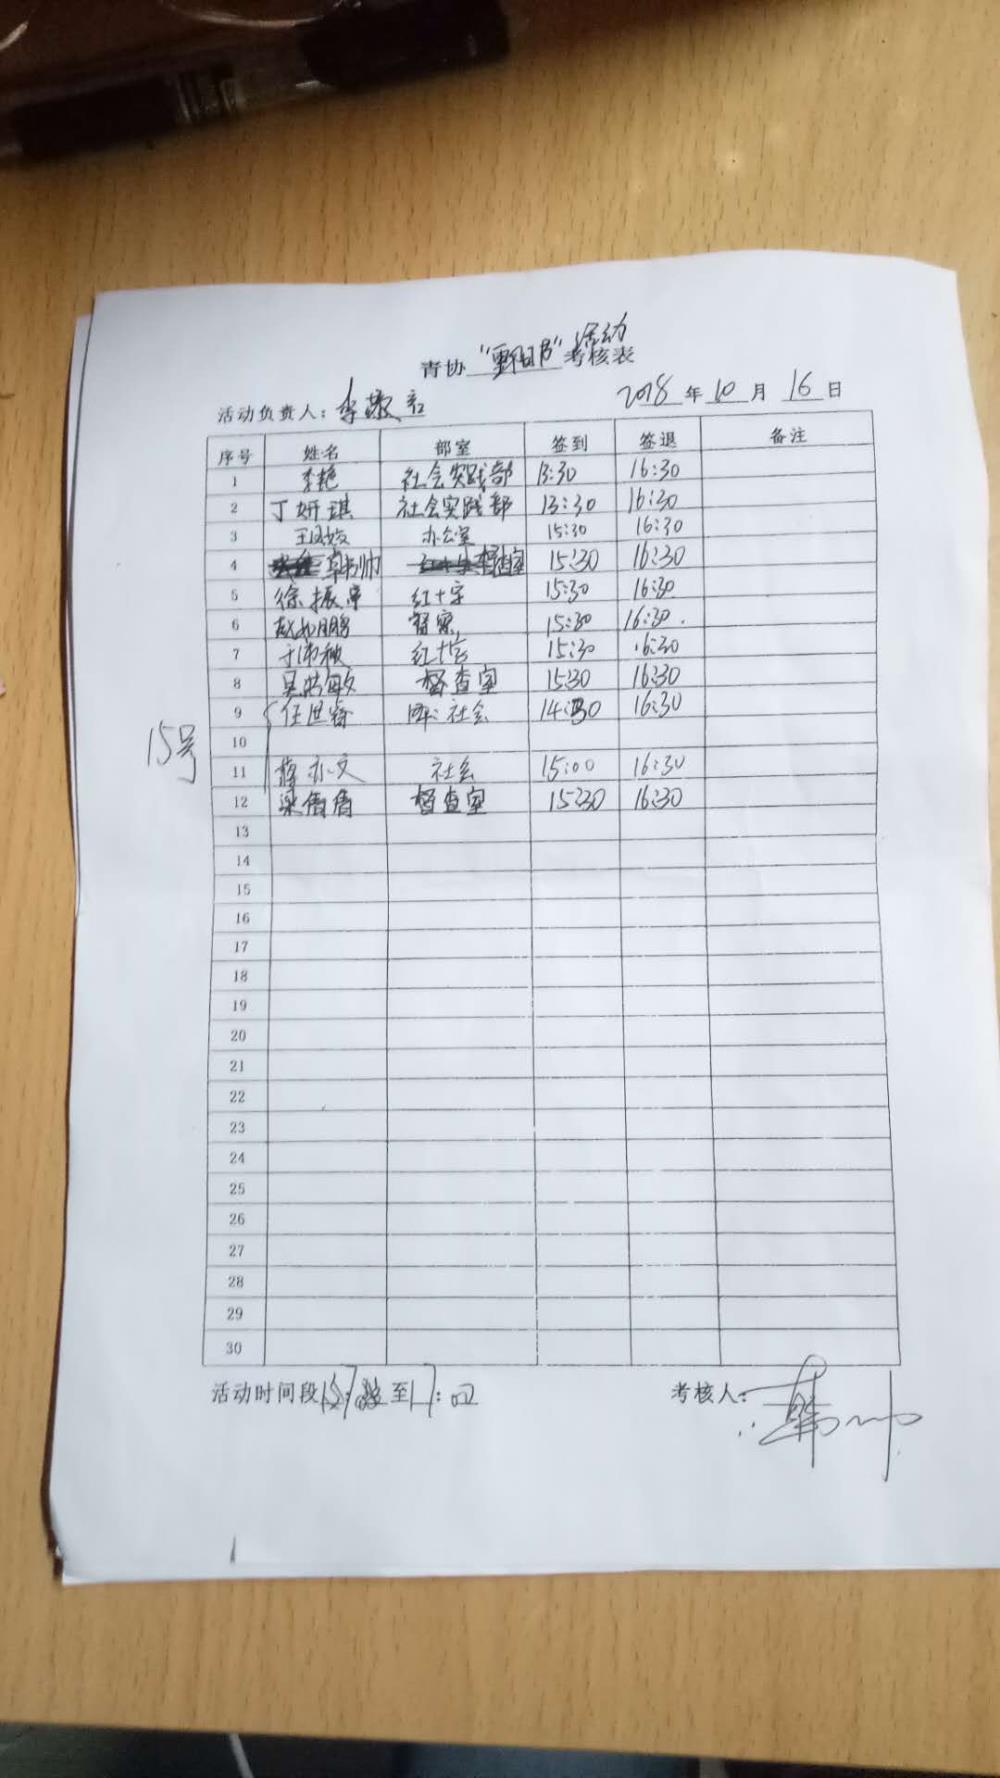 青协 " " 活动考核表
活动负责人: 李 2018 年 10 月 16 日
序号 姓名 部室 签到 签退 备注
1 李艳 社会实践部 13:30 16:30
2 丁妍琪 社会实践部 13:30 16:30
3 办公室 15:30 16:30
4 15:30 16:30
5 徐振 红十字 15:30 16:30
6 督察 15:30 16:30
7 红十字 15:30 16:30
8 督查室 15:30 16:30
9 任世 社会 14:30 16:30
15号
10
11 蒋亦文 社会 15:00 16:30
12 梁倩倩 督查室 15:30 16:30
13
14
15
16
17
18
19
20
21
22
23
24
25
26
27
28
29
30
活动时间段 至17:00 考核人: